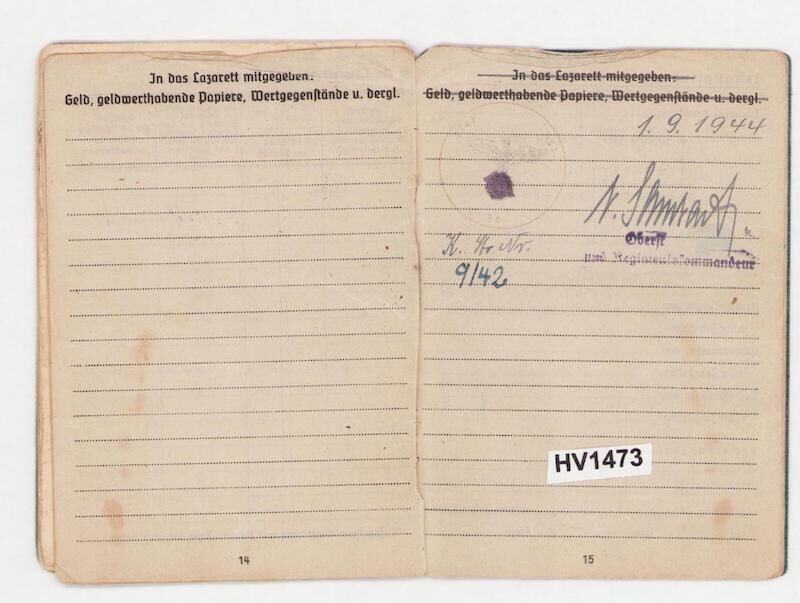 In das Lazarett mitgegeben:
Geld, geldwerthabende Papiere, Wertgegenstände u. dergl.
14
In das Lazarett mitgegeben:
Geld, geldwerthabende Papiere, Wertgegenstände u. dergl.
1. 9. 1944
Oberst
und Regimentskommandeur
K. Nr.
9/42
HV1473
15